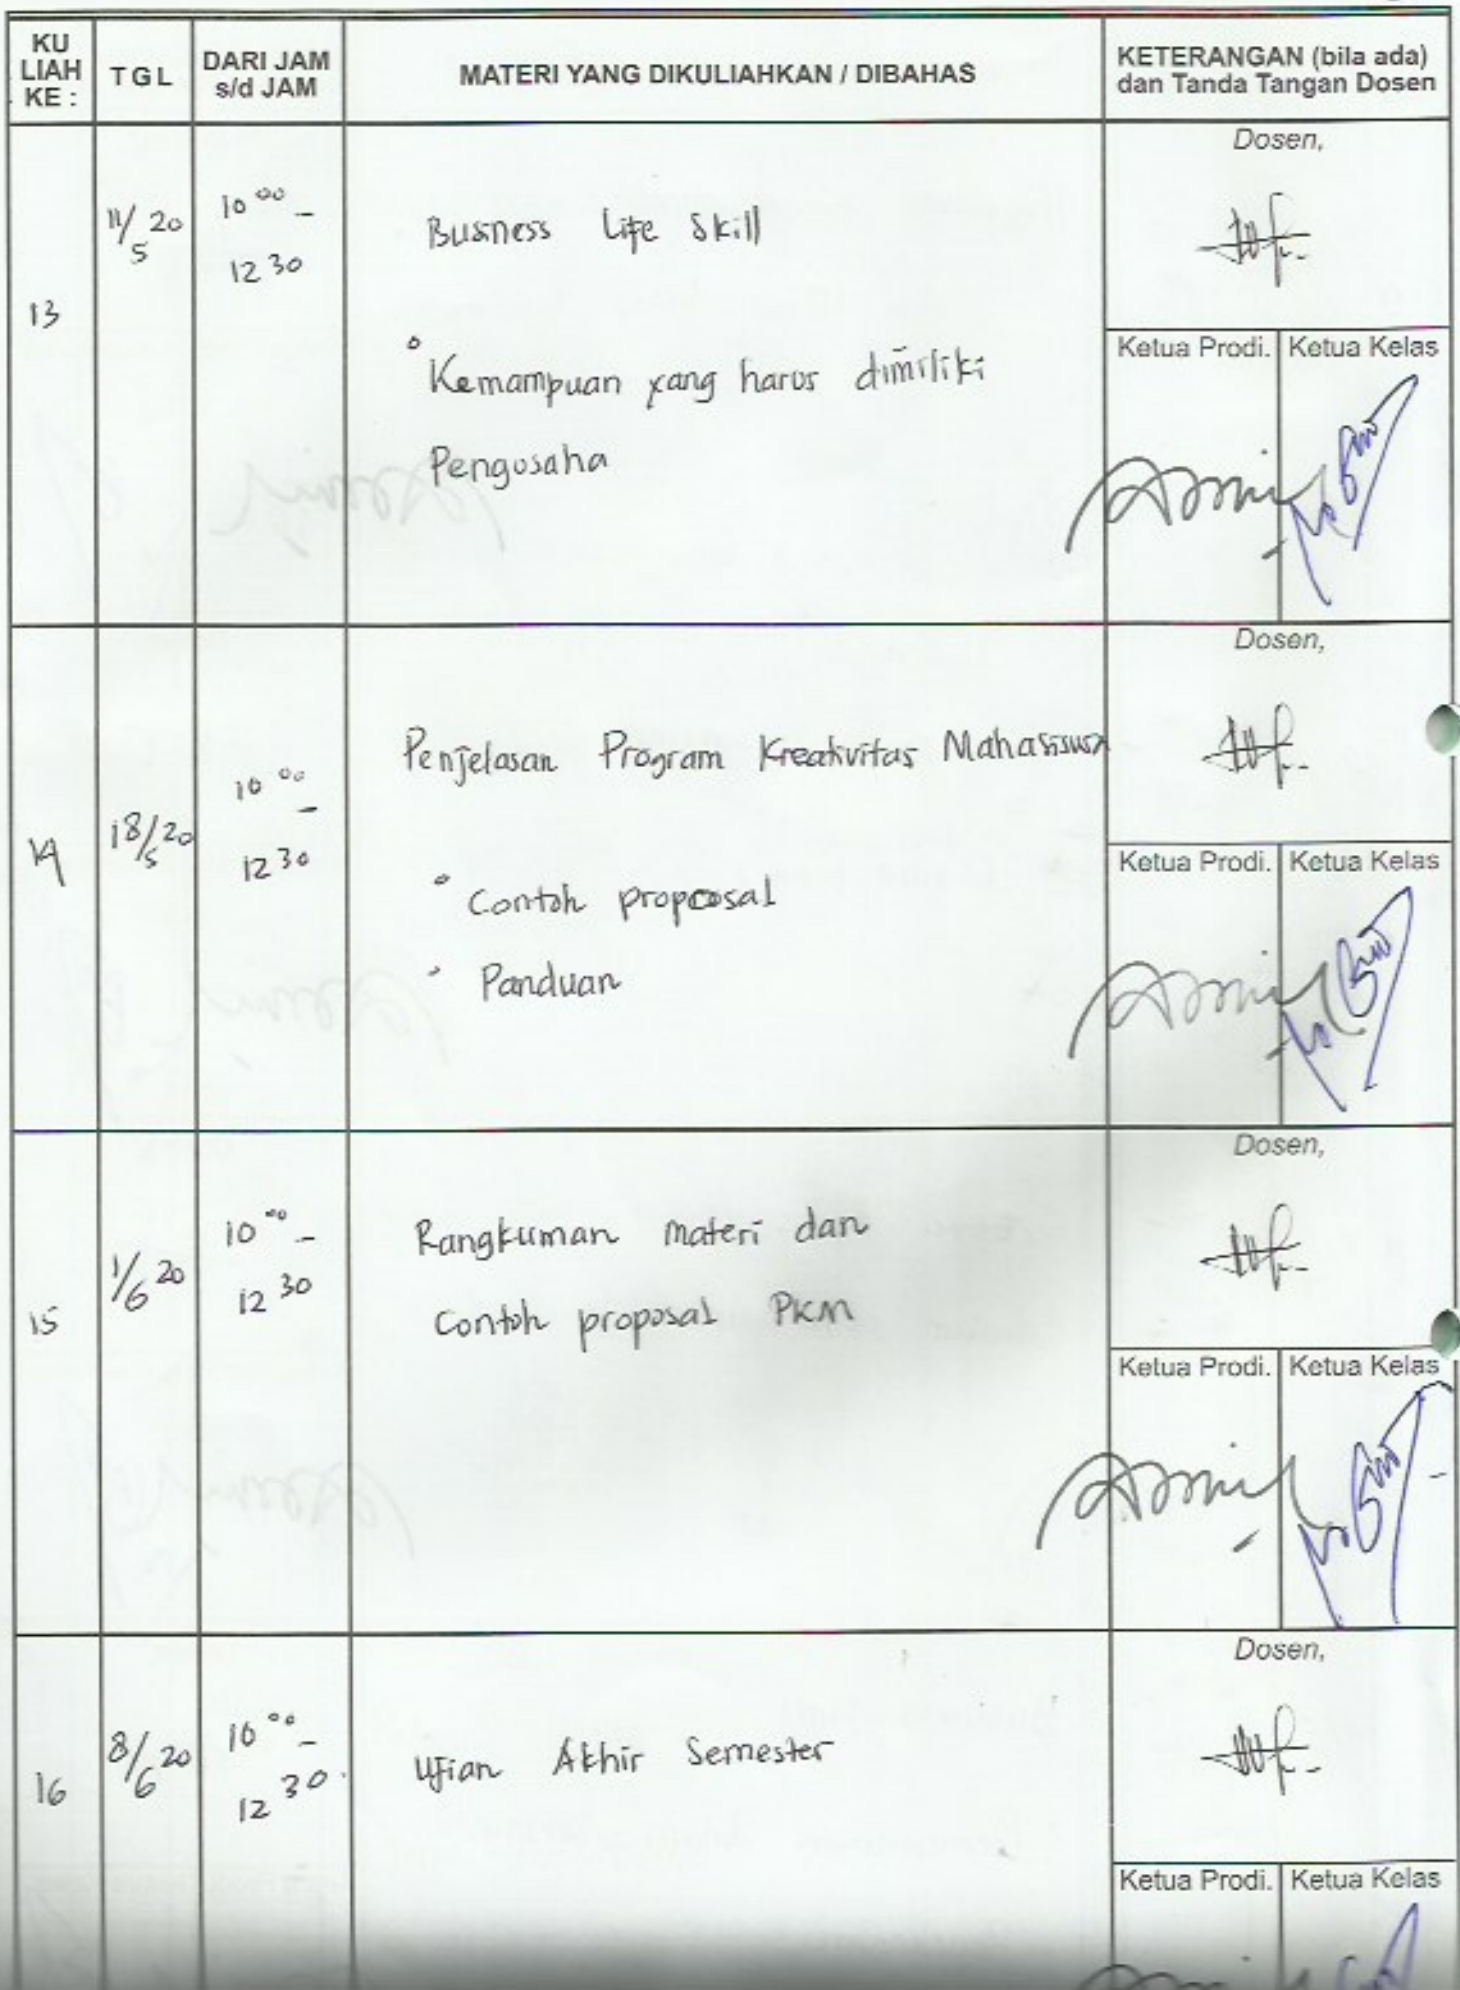 KU
LIAH
KE :
TGL
DARI JAM
s/d JAM
MATERI YANG DIKULIAHKAN / DIBAHAS
KETERANGAN (bila ada)
dan Tanda Tangan Dosen
13
11/5 20
10 00 -
12 30
Busness Life Skill
° Kemampuan yang harus dimiliki
Pengusaha
Dosen,
Ketua Prodi. Ketua Kelas
14
18/5 20
10 00 -
12 30
Penjelasan Program Kreativitas Mahasiswa
° Contoh propoosal
° Panduan
Dosen,
Ketua Prodi. Ketua Kelas
15
1/6 20
10 00 -
12 30
Rangkuman materi dan
Contoh proposal PKM
Dosen,
Ketua Prodi. Ketua Kelas
16
8/6 20
10 00 -
12 30
Ujian Akhir Semester
Dosen,
Ketua Prodi. Ketua Kelas